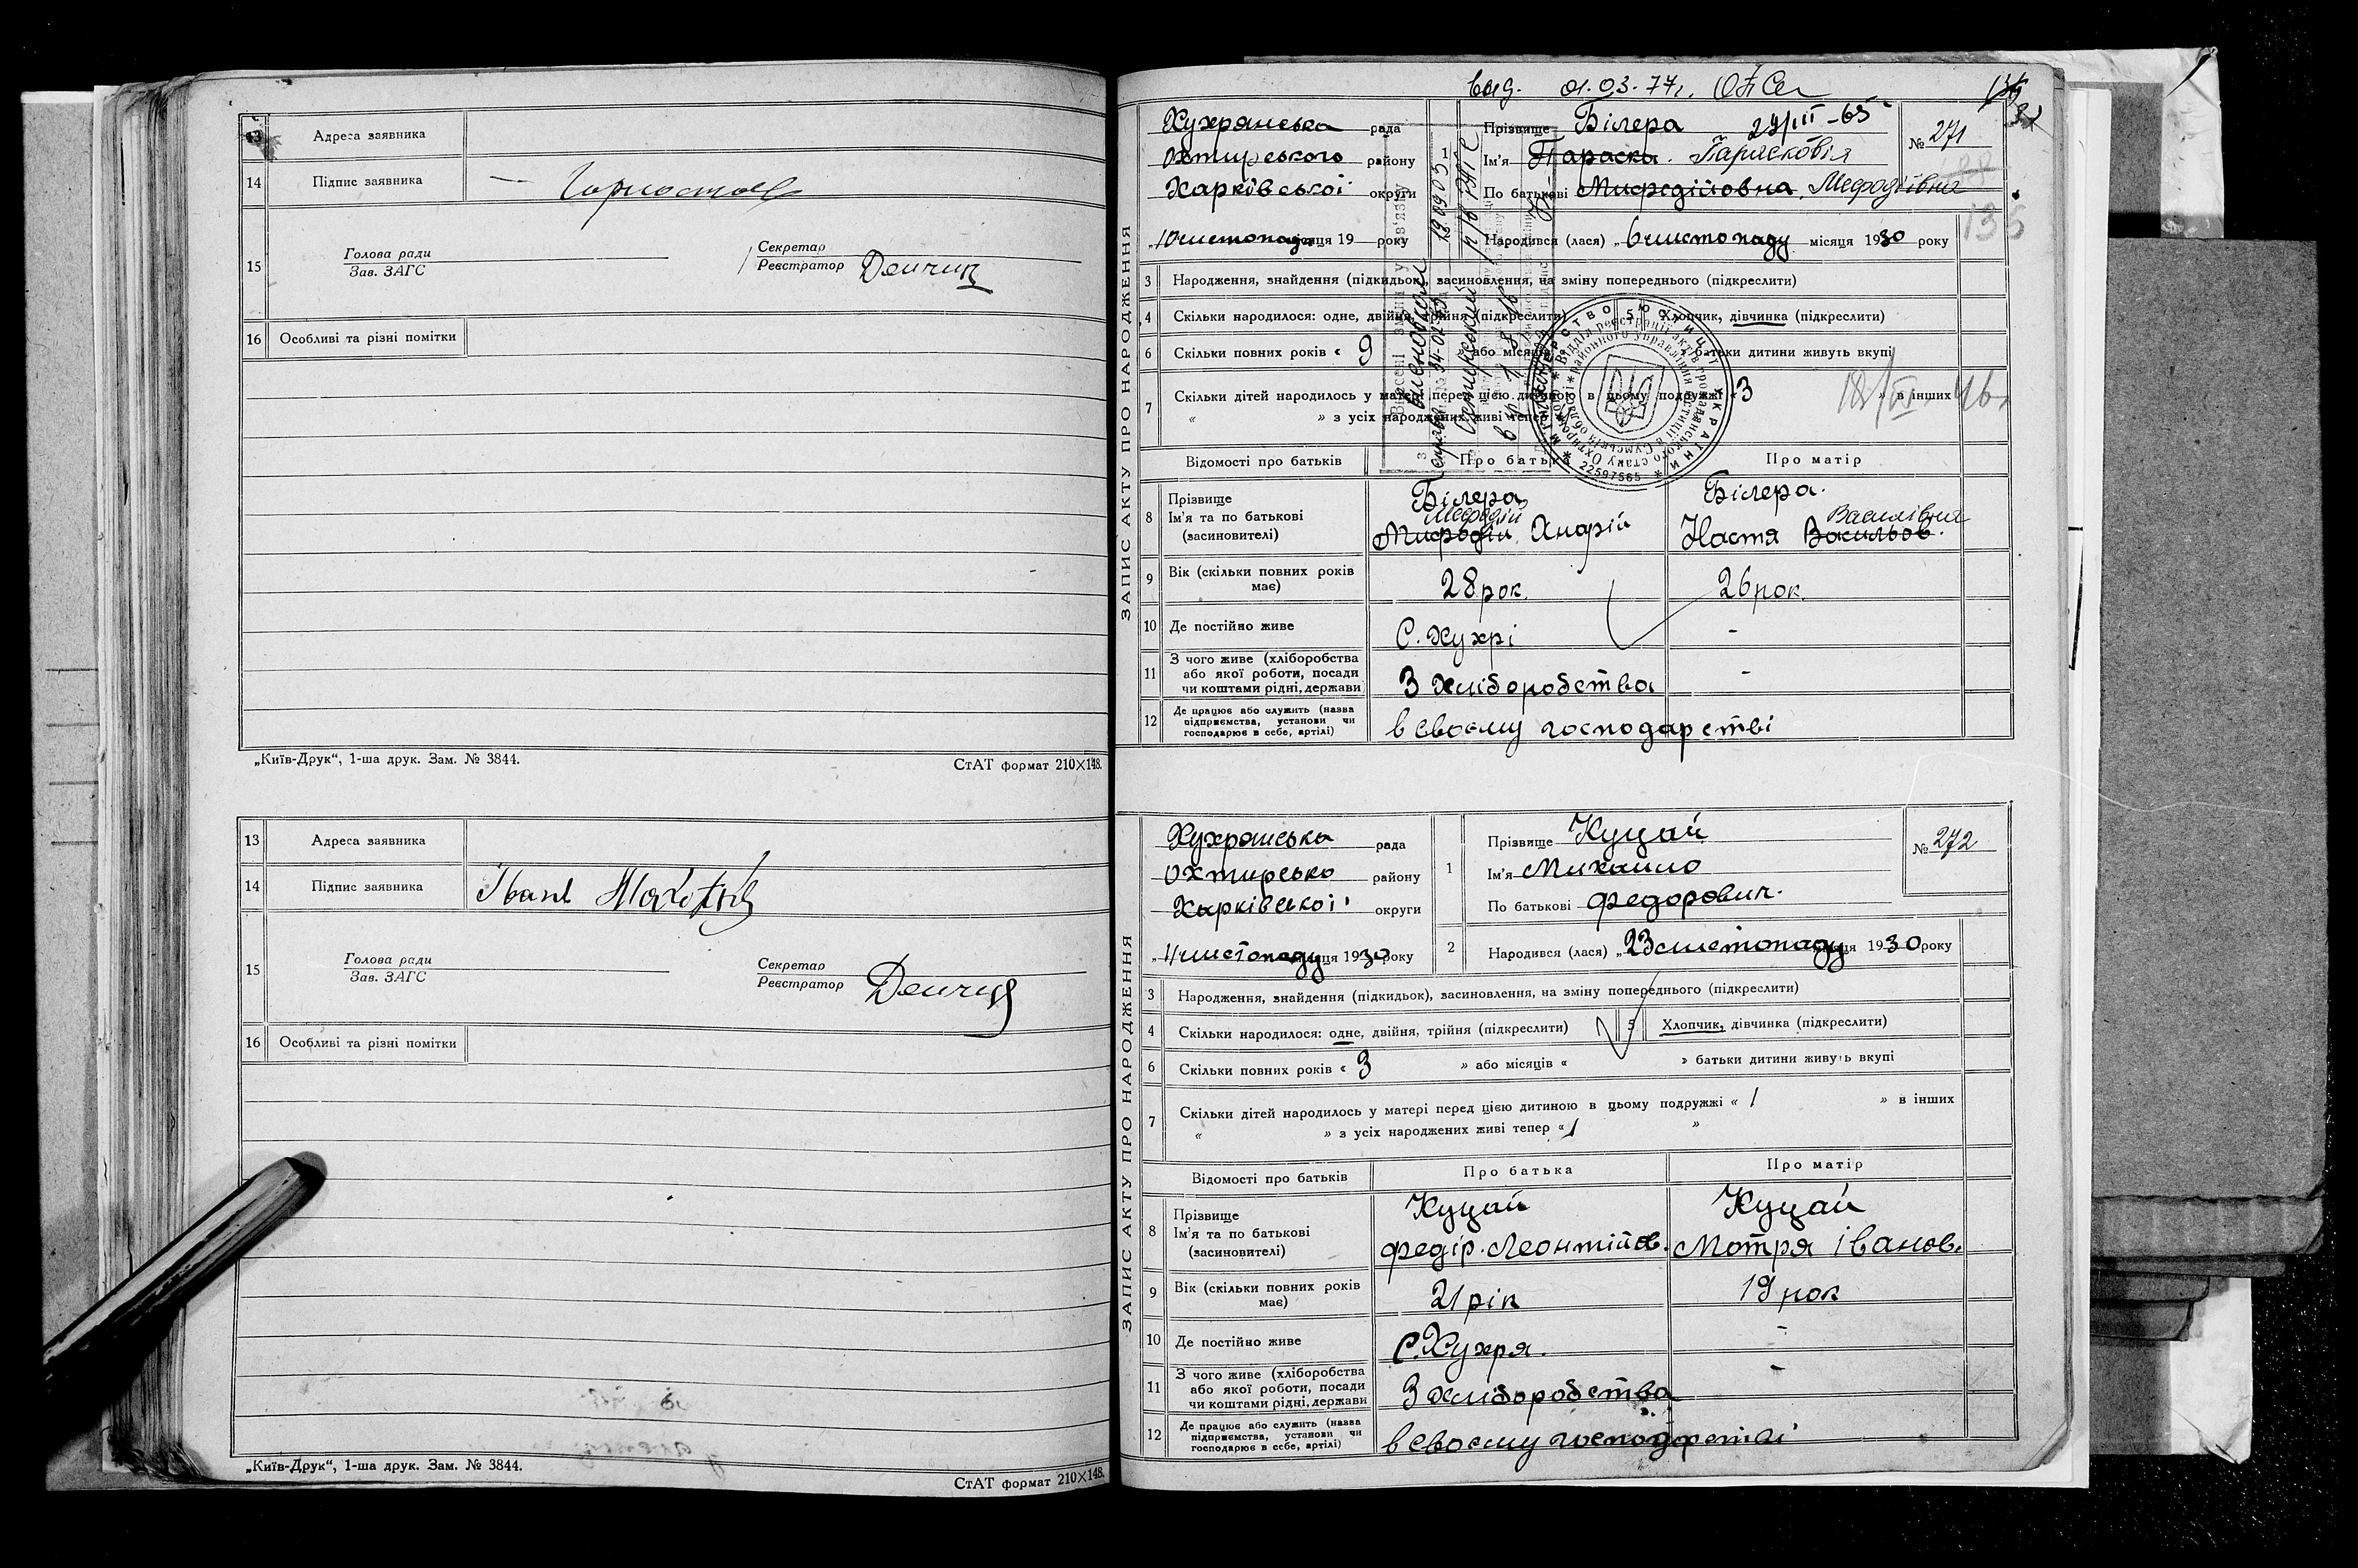 13 Адреса заявника
14 Підпис заявника
15 Голова ради
Зав. ЗАГС
Секретар
Реєстратор
16 Особливі та різні помітки
„Київ-Друк“, 1-ша друк. Зам. № 3844.
СтАТ формат 210×148.
13 Адреса заявника
14 Підпис заявника Іван
15 Голова ради
Зав. ЗАГС
Секретар
Реєстратор
16 Особливі та різні помітки
„Київ-Друк“, 1-ша друк. Зам. № 3844.
СтАТ формат 210×148.
вид. 01.03.77г.
ЗАПИС АКТУ ПРО НАРОДЖЕННЯ
Хухрянська рада
Охтирського району
Харківської округи
1 Прізвище Білера 29/III-65
Ім'я Параска. Парасковія
По батькові Мифодійовна, Мефодіївна
№ 271
135
„10 листопада місяця 19 року
Народився (лася) „6 листопаду місяця 1930 року
3 Народження, знайдення (підкидьок), засиновлення, на зміну попереднього (підкреслити)
4 Скільки народилося: одне, двійня, трійня (підкреслити)
5 Хлопчик, дівчинка (підкреслити)
6 Скільки повних років « 9 » або місяців « » батьки дитини живуть вкупі
7 Скільки дітей народилось у матері перед цією дитиною в цьому подружжі « 3 » в інших
« » з усіх народжених живі тепер «
22597565
Відомості про батьків Про батька Про матір
8 Прізвище Білера Білера.
Ім'я та по батькові Мефодій Василівна
(засновителі) Мифодій Андрій Настя Васильов.
9 Вік (скільки повних років має) 28 рок. 26 рок.
10 Де постійно живе С. Хухрі -
11 З чого живе (хліборобства
або якої роботи, посади
чи коштами рідні, держави З хліборобства -
12 Де працює або служить (назва
підприємства, установи чи
господарює в себе, артілі) в своєму господарстві
ЗАПИС АКТУ ПРО НАРОДЖЕННЯ
Хухрянська рада
Охтирсько району
Харківської округи
1 Прізвище Куцай
Ім'я Михайло
По батькові Федорович.
№ 272
„11 листопаду місяця 1930 року
2 Народився (лася) „23 листопаду місяця 1930 року
3 Народження, знайдення (підкидьок), засиновлення, на зміну попереднього (підкреслити)
4 Скільки народилося: одне, двійня, трійня (підкреслити)
5 Хлопчик, дівчинка (підкреслити)
6 Скільки повних років « 3 » або місяців « » батьки дитини живуть вкупі
7 Скільки дітей народилось у матері перед цією дитиною в цьому подружжі « 1 » в інших
« » з усіх народжених живі тепер « 1 »
Відомості про батьків Про батька Про матір
8 Прізвище Куцай Куцай
Ім'я та по батькові
(засиновителі) Федір. Леонтійов. Мотря Іванов.
9 Вік (скільки повних років має) 21 рік 19 рок
10 Де постійно живе С. Хухря. -
11 З чого живе (хліборобства
або якої роботи, посади
чи коштами рідні, держави З хліборобства -
12 Де працює або служить (назва
підприємства, установи чи
господарює в себе, артілі) в своєму господрстві